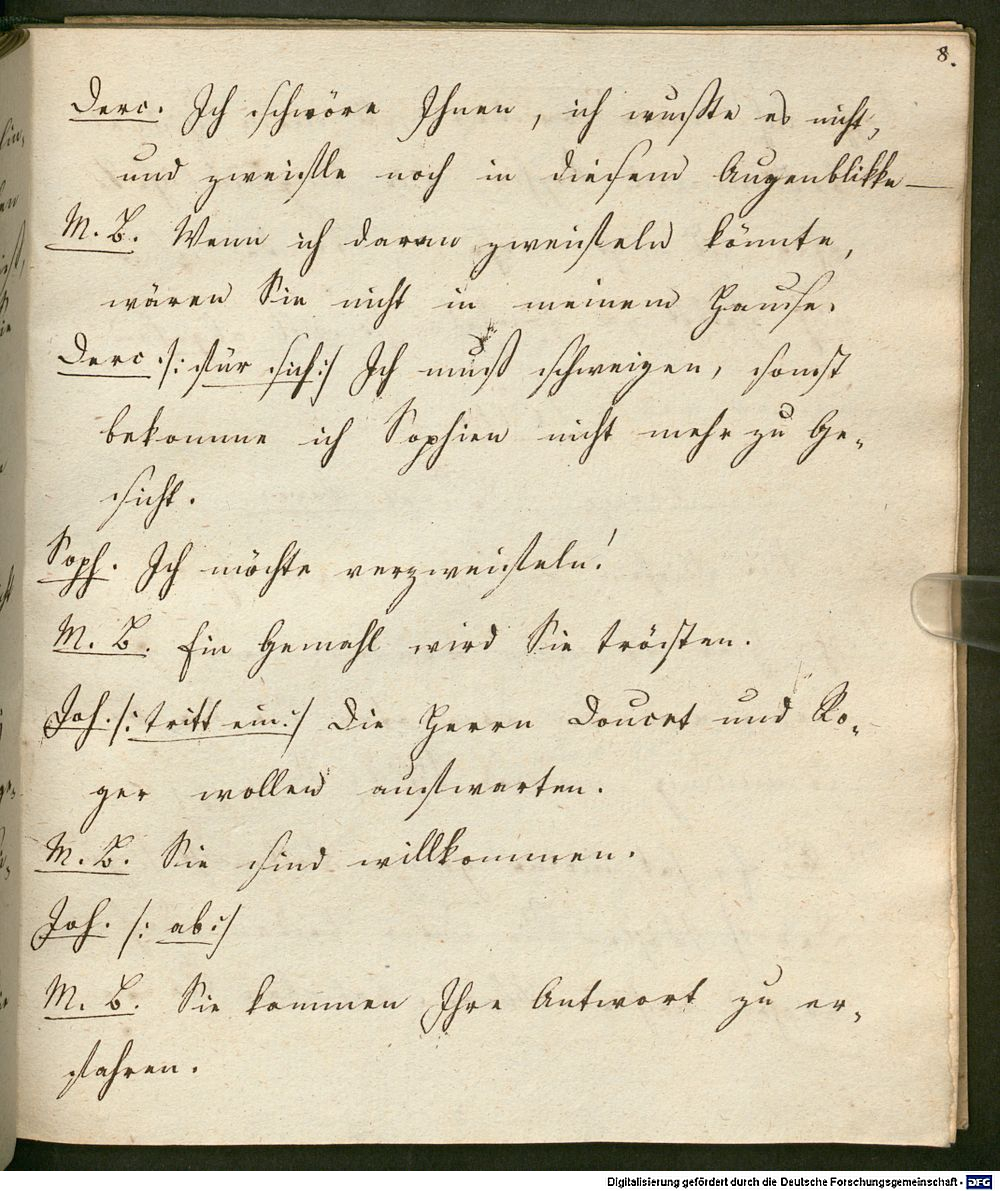 8.
Derc. Ich schwöre Ihnen, ich wußte es nicht,
und zweifle noch in diesem Augenblikke —
M. B. Wenn ich daran zweifeln könnte,
wären Sie nicht in meinem Hause.
Derc /: für sich :/ Ich muß schweigen, sonst
bekomme ich Sophien nicht mehr zu Ge-
sicht.
Soph. Ich möchte verzweifeln!
M. B. Ein Gemahl wird Sie trösten.
Joh. /: tritt ein :/ Die Herrn Doucet und Ro-
ger wollen aufwarten.
M. B. Sie sind willkommen.
Joh. /: ab :/
M. B. Sie kommen Ihre Antwort zu er-
fahren.
Digitalisierung gefördert durch die Deutsche Forschungsgemeinschaft - DFG